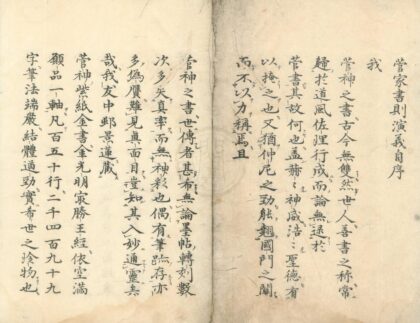 菅家書則演義自序
我
菅神之書古今無雙然世人善書之称常
歸於道風佐理行成而論無逮於
菅書其故何也蓋赫々神威浩々聖德有
以掩之也又猶仲尼之勁能翹國門之關
而不以力稱焉且
菅神之書世傳者甚希無論墨帖轉刻數
次多失真率而無神彩也偶有筆蹟存亦
多僞贋難見真面目豈知其入妙通靈矣
哉我友中郵景蓮藏
菅神紫紙金書金光明最勝王經依空滿
願品一軸凡百五十行二千四百九十九
字筆法端嚴結體遒勁實希世之珍物也